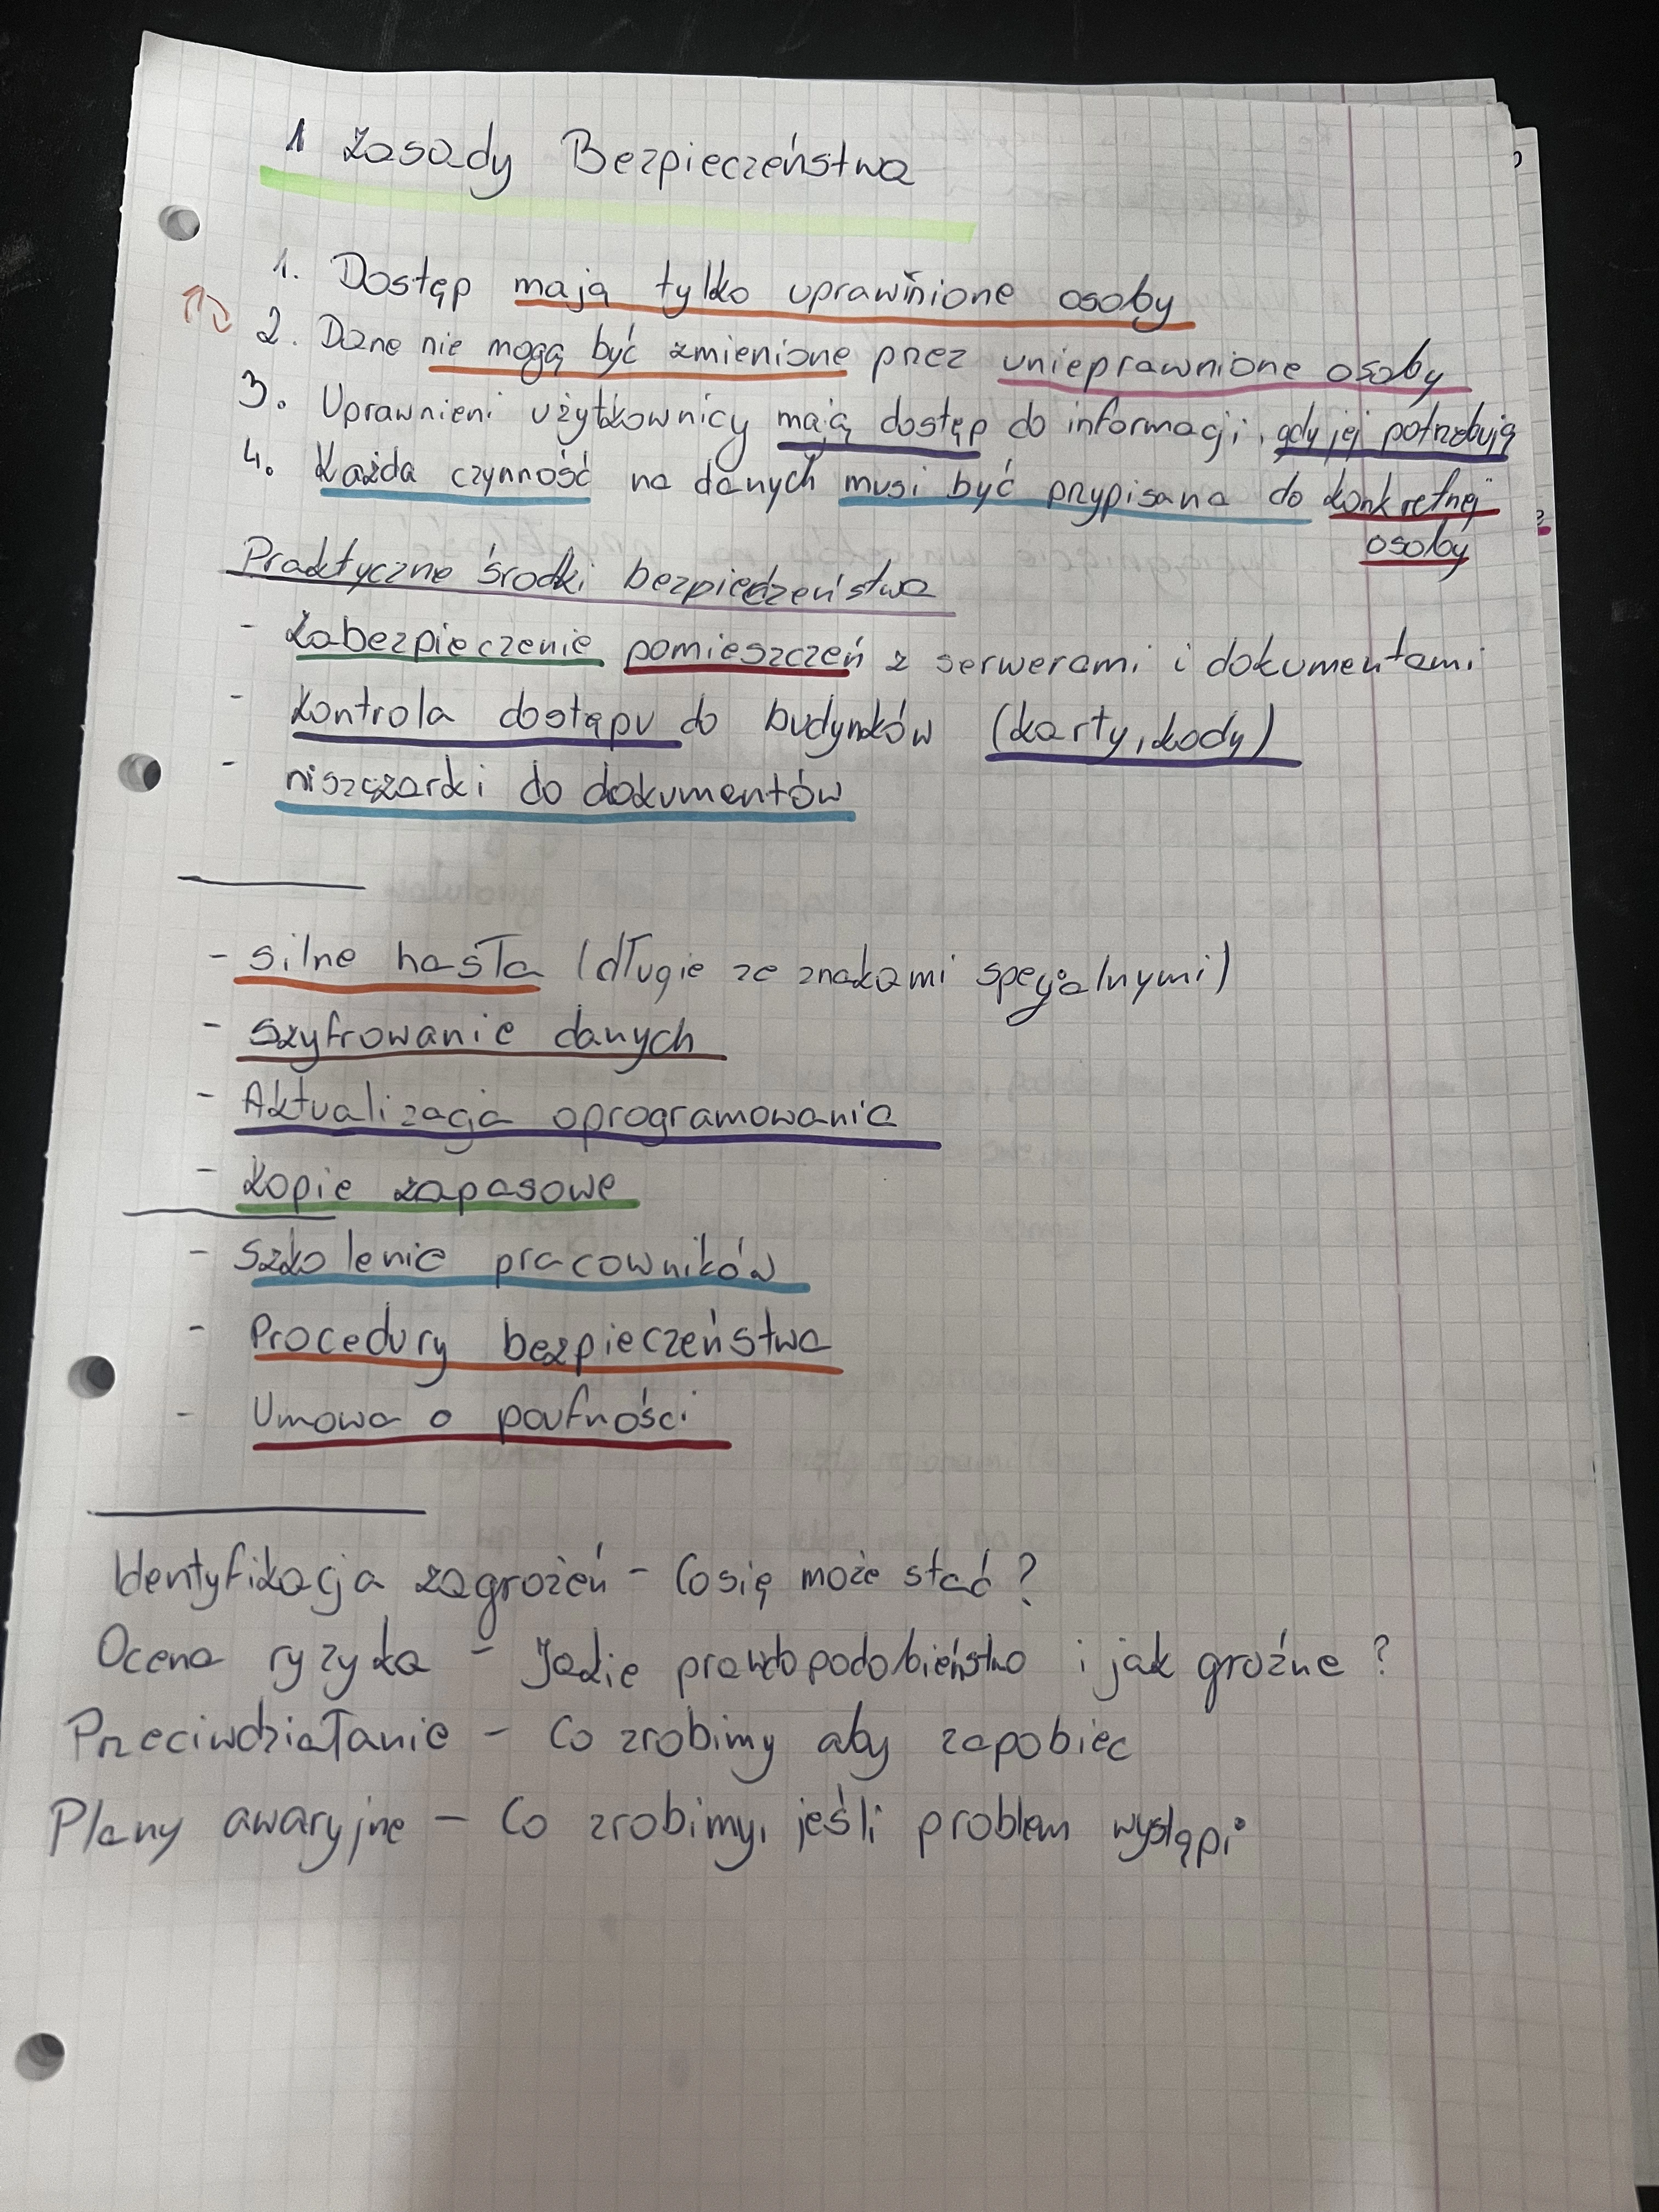 1 Zasady Bezpieczeństwa
1. Dostęp mają tylko uprawnione osoby
2. Dane nie mogą być zmienione przez unieprawnione osoby
3. Uprawnieni użytkownicy mają dostęp do informacji, gdy jej potrzebują
4. Każda czynność na danych musi być przypisana do konkretnej
osoby
Praktyczne środki bezpiedzeństwa
- Zabezpieczenie pomieszczeń z serwerami i dokumentami
- Kontrola dostępu do budynków (karty, kody)
- niszczarki do dokumentów
- silne hasła (długie ze znakami specjalnymi)
- szyfrowanie danych
- Aktualizacja oprogramowania
- Kopie zapasowe
- Szkolenie pracowników
- Procedury bezpieczeństwa
- Umowa o poufności
Identyfikacja zagrożeń - Co się może stać?
Ocena ryzyka - Jakie prawdopodobieństwo i jak groźne?
Przeciwdziałanie - Co zrobimy aby zapobiec
Plany awaryjne - Co zrobimy, jeśli problem wystąpi